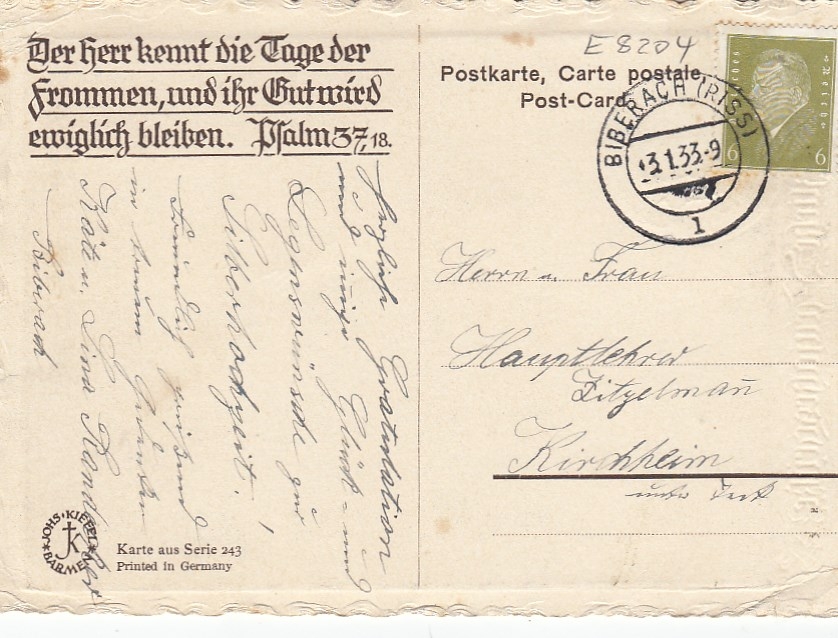 Der Herr kennt die Tage der
Frommen, und ihr Gut wird
ewiglich bleiben. Psalm 37, 18.
E 8204
Postkarte, Carte postale,
Post-Card
BIBERACH (RISS)
3.1.33.-9
1
6 6
Herzliche Gratulation
und innige Glück- und
Segenswünsche zur
Silberhochzeit!
Freundlich grüßend
in treuem Gedenken
Käte u. Lina
Biberach
Herrn u. Frau
Hauptlehrer
Zitzelmann
Kirchheim
unter Teck
JOHS. KIEFEL
BARMEN
Karte aus Serie 243
Printed in Germany